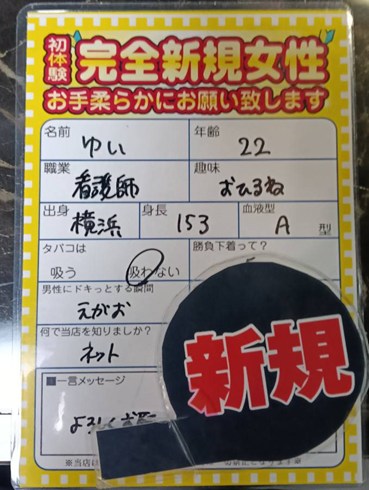 初体験 完全新規女性
お手柔らかにお願い致します
名前 ゆい 年齢 22
職業 看護師 趣味 おひるね
出身 横浜 身長 153 血液型 A 型
タバコは 勝負下着って？
吸う 吸わない
男性にドキっとする瞬間
えがお
何で当店を知りましたか？
ネット
新規
■一言メッセージ
よろしくお
※当店は